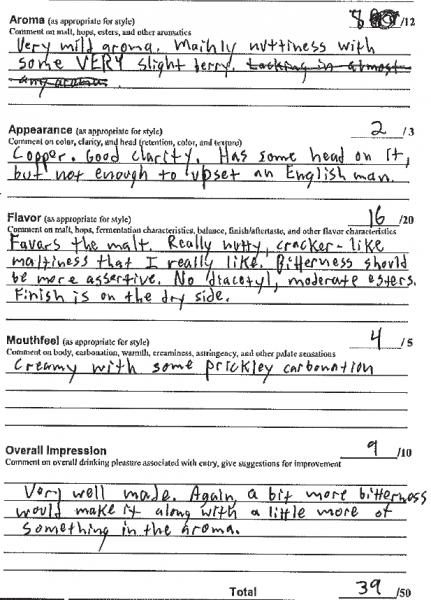 Aroma (as appropriate for style) 8 /12
Comment on malt, hops, esters, and other aromatics
Very mild aroma. Mainly nuttiness with
some VERY slight berry. Lacking in almost
any aroma.
Appearance (as appropriate for style) 2 / 3
Comment on color, clarity, and head (retention, color, and texture)
Copper. Good clarity. Has some head on it,
but not enough to upset an English man.
Flavor (as appropriate for style) 16 /20
Comment on malt, hops, fermentation characteristics, balance, finish/aftertaste, and other flavor characteristics
Favors the malt. Really nutty, cracker-like
maltiness that I really like. Bitterness should
be more assertive. No diacetyl, moderate esters.
Finish is on the dry side.
Mouthfeel (as appropriate for style) 4 / 5
Comment on body, carbonation, warmth, creaminess, astringency, and other palate sensations
Creamy with some prickley carbonation
Overall Impression 9 /10
Comment on overall drinking pleasure associated with entry, give suggestions for improvement
Very well made. Again, a bit more bitterness
would make it along with a little more of
something in the aroma.
Total 39 /50